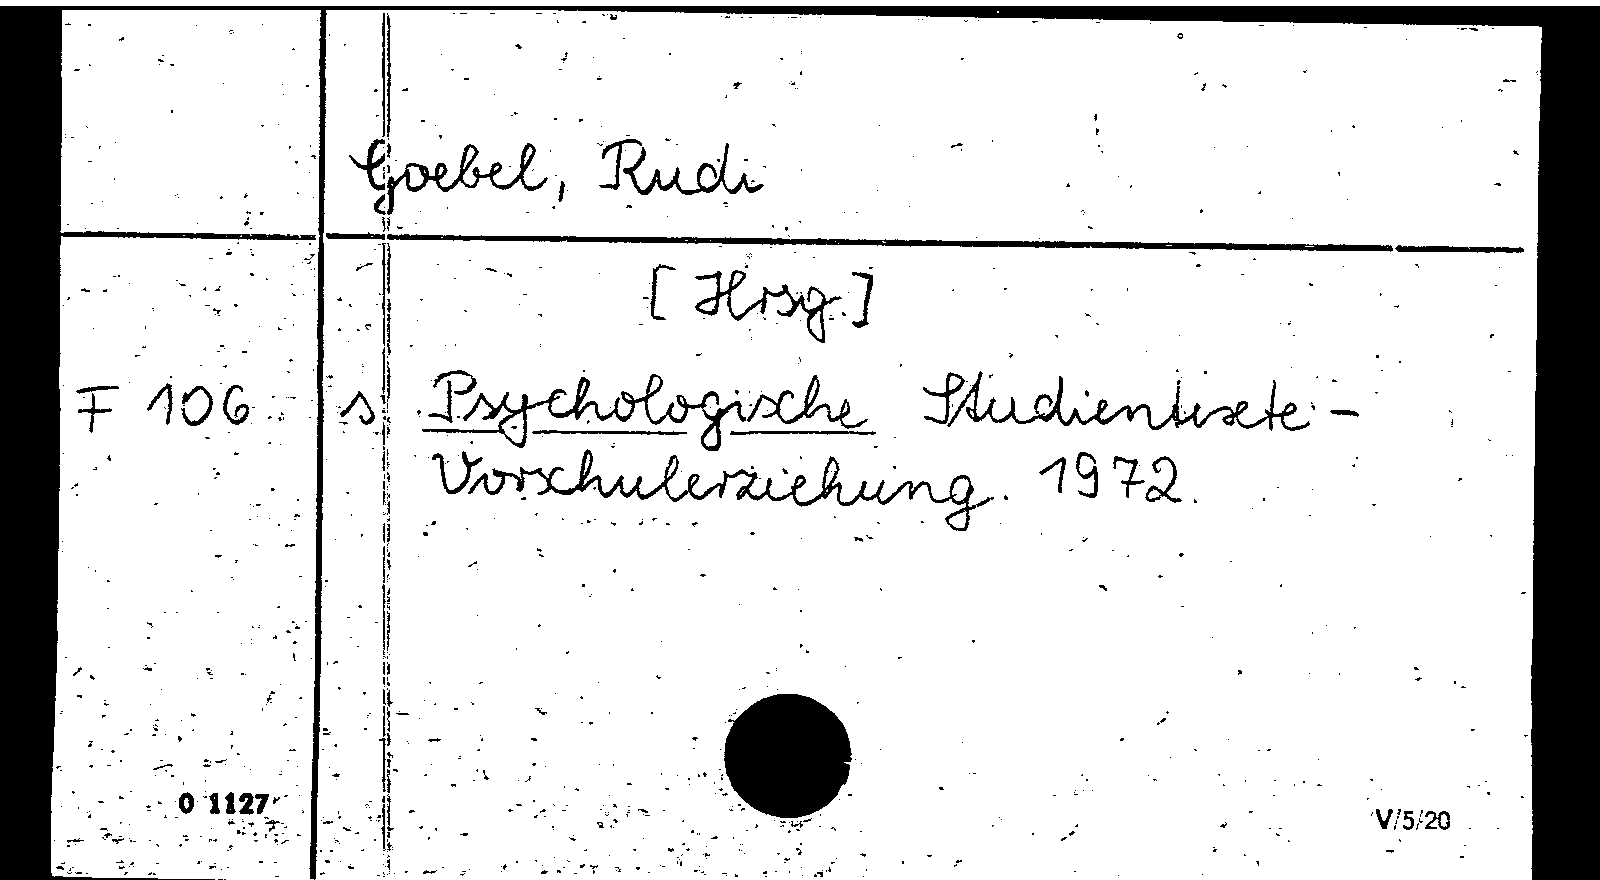 Goebel, Rudi
[Hrsg.]
F 106 s. Psychologische Studientexte -
Vorschulerziehung. 1972.
O 1127
V/5/20